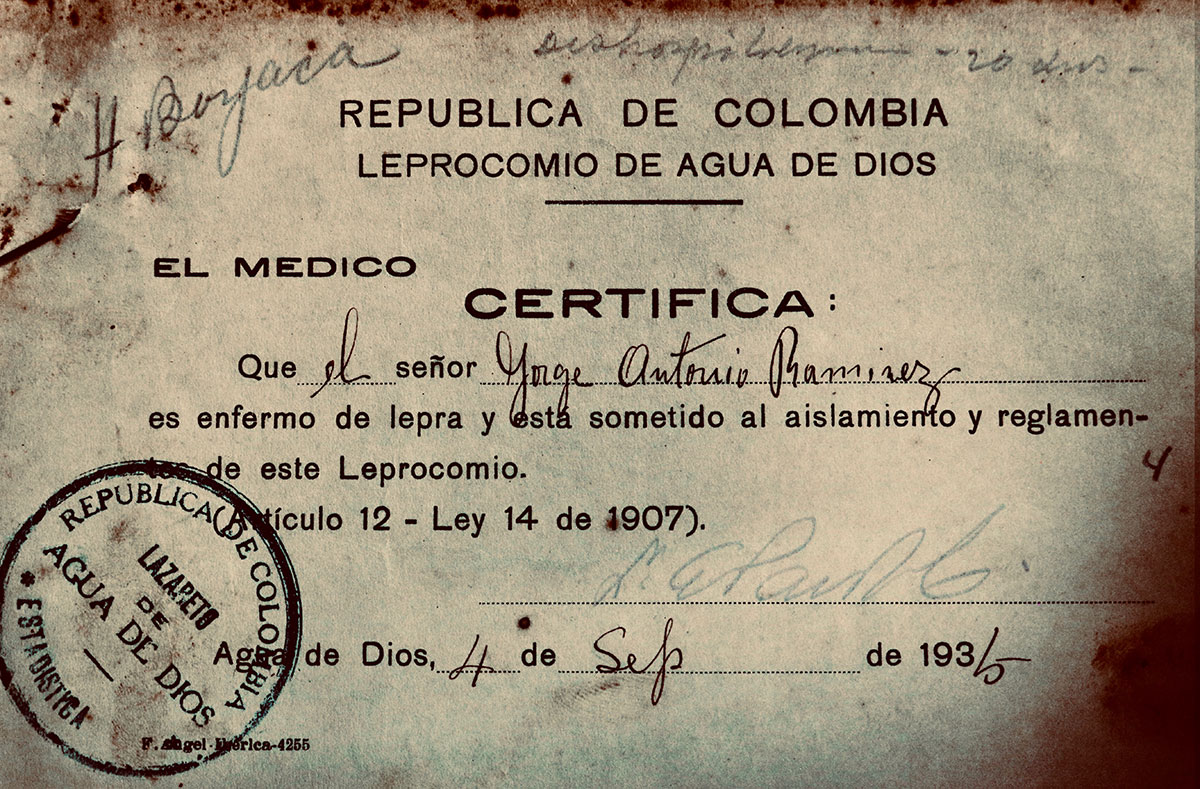 H Boyaca
20 dias -
REPUBLICA DE COLOMBIA
LEPROCOMIO DE AGUA DE DIOS
EL MEDICO
CERTIFICA:
Que el señor Jorge Antonio Ramirez
es enfermo de lepra y está sometido al aislamiento y reglamen-
tos de este Leprocomio.
4
(Artículo 12 - Ley 14 de 1907).
Agua de Dios, 4 de Sep de 1935
REPUBLICA DE COLOMBIA
LAZARETO
DE
AGUA DE DIOS
* ESTADISTICA
F. Angel-Iberica-4255